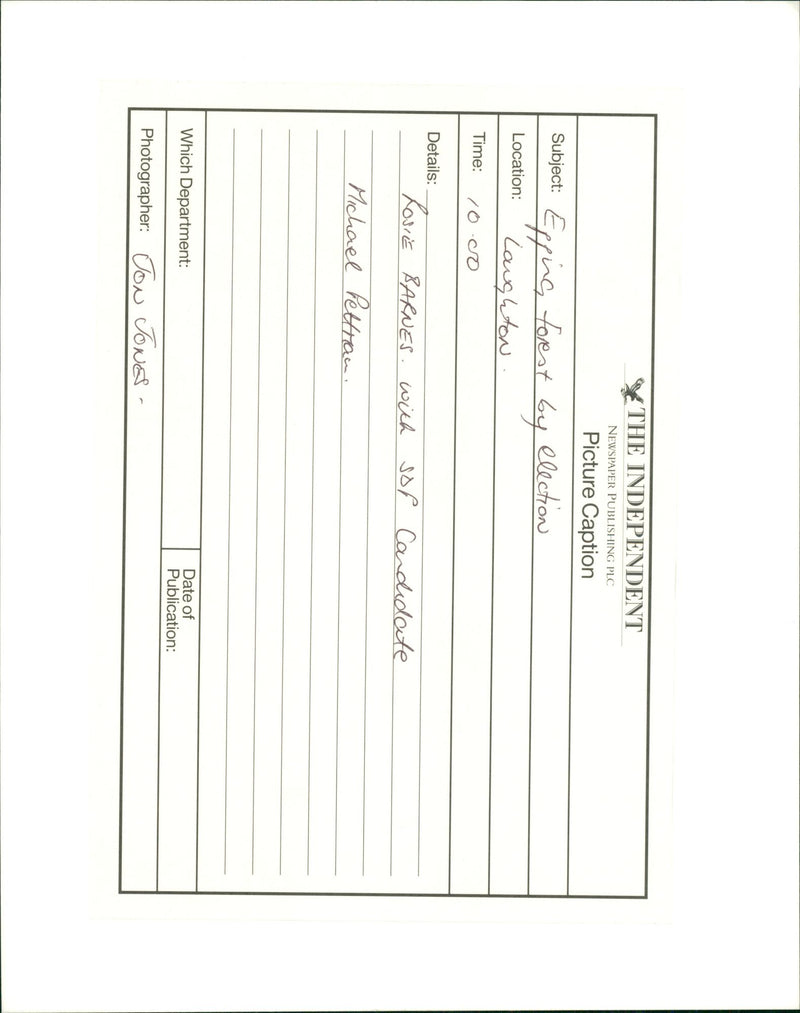 THE INDEPENDENT
NEWSPAPER PUBLISHING PLC
Picture Caption
Subject: Epping forest by election
Location: Loughton.
Time: 10.00
Details: Rosie BARNES. with SDP Candidate
Michael Pettman.
Which Department:
Date of
Publication:
Photographer: Jon Jones.